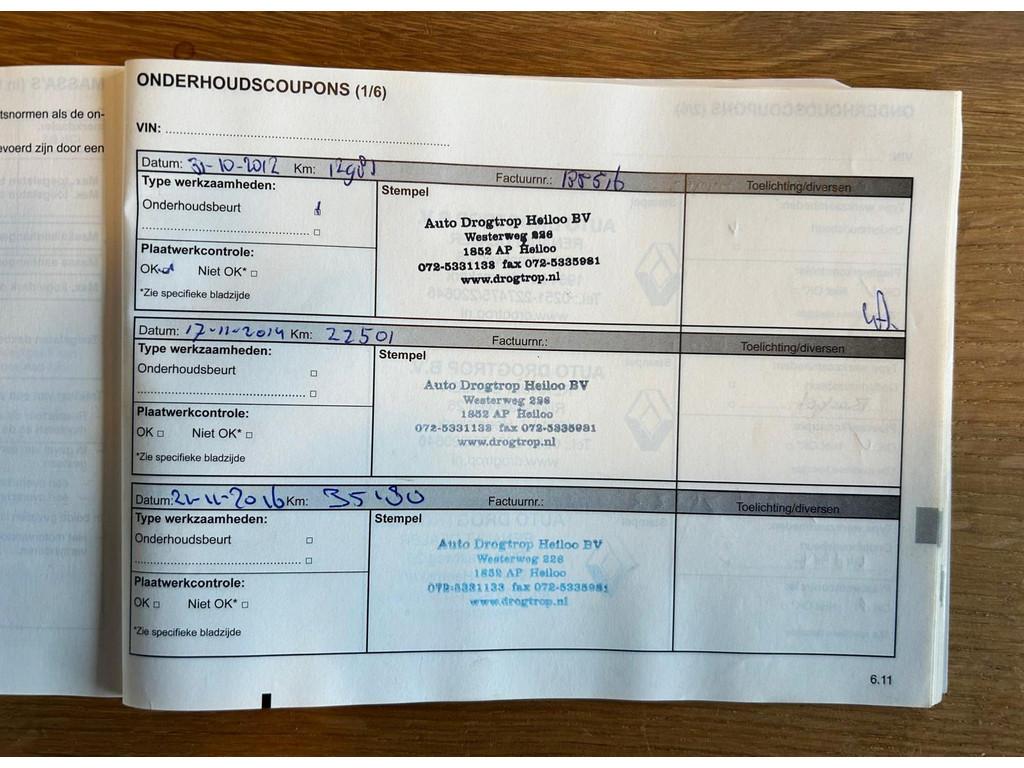 tsnormen als de on-
evoerd zijn door een
ONDERHOUDSCOUPONS (1/6)
VIN:
Datum: 31-10-2012 Km: 12981 Factuurnr.: Toelichting/diversen
Type werkzaamheden:
Stempel
Onderhoudsbeurt
Auto Drogtrop Heiloo BV
Westerweg 226
1852 AP Heiloo
072-5331133 fax 072-5335981
www.drogtrop.nl
Plaatwerkcontrole:
OK Niet OK*
*Zie specifieke bladzijde
Datum: 17-11-2014 Km: 22501 Factuurnr.: Toelichting/diversen
Type werkzaamheden:
Stempel
Onderhoudsbeurt
Auto Drogtrop Heiloo BV
Westerweg 226
1852 AP Heiloo
072-5331133 fax 072-5335981
www.drogtrop.nl
Plaatwerkcontrole:
OK Niet OK*
*Zie specifieke bladzijde
Datum: 21-11-2016 Km: 35190 Factuurnr.: Toelichting/diversen
Type werkzaamheden:
Stempel
Onderhoudsbeurt
Auto Drogtrop Heiloo BV
Westerweg 226
1852 AP Heiloo
072-5331133 fax 072-5335981
www.drogtrop.nl
Plaatwerkcontrole:
OK Niet OK*
*Zie specifieke bladzijde
6.11